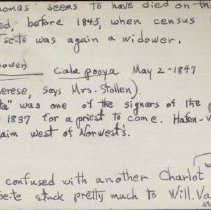 homas seems to have died on th
ed, before 1845, when census
was again a widower.
Calapooya May 2-1847
erese, says Mrs. Stollen).
" was one of the signers of the p
1837 for a priest to come.
aim west of Norwest's.
confused with another Charlot
stuck pretty much to Will. Va